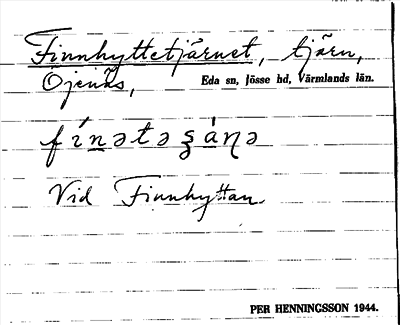 Finnhyttetjärnet, tjärn,
Öjenäs, Eda sn, Jösse hd, Värmlands län.
Vid Finnhyttan.
PER HENNINGSSON 1944.